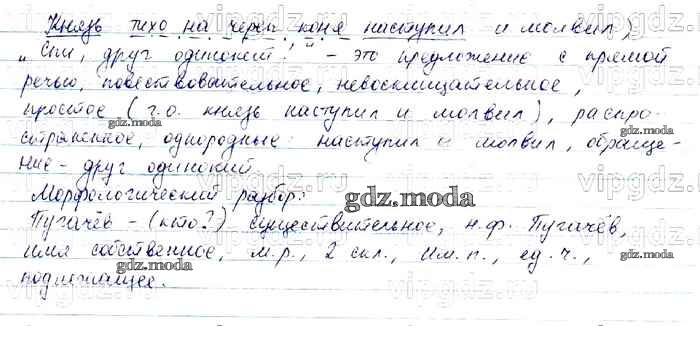 Князь тихо на череп коня наступил и молвил,
„Спи, друг одинокий!" – это предложение с прямой
речью, повествовательное, невосклицательное,
простое (г.о. князь наступил и молвил), распро-
страненное, однородные наступил и молвил, обраще-
ние – друг одинокий.
Морфологический разбор:
Пугачёв – (кто?) существительное, н.ф. Пугачёв,
имя собственное, м.р., 2 скл., Им.п., ед.ч.,
подлежащее.
gdz.moda
gdz.moda
gdz.moda
gdz.moda
gdz.moda
vipgdz.ru